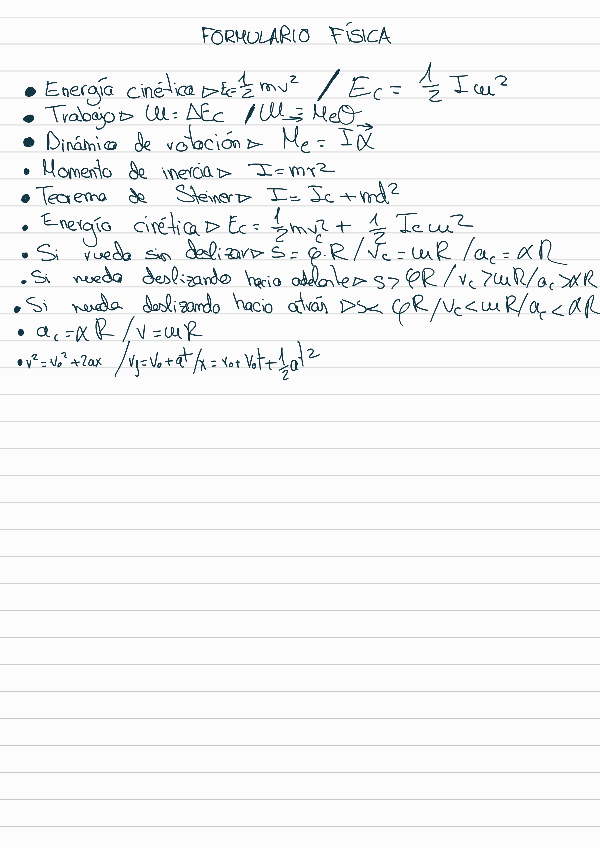 FORMULARIO FÍSICA
• Energía cinética ▷ Ec = 1/2 mv² / Ec = 1/2 I ω²
• Trabajo ▷ W = ΔEc / W = Me θ
• Dinámica de rotación ▷ Me = I α⃗
• Momento de inercia ▷ I = mr²
• Teorema de Steiner ▷ I = Ic + md²
• Energía cinética ▷ Ec = 1/2 mvc² + 1/2 Ic ω²
• Si rueda sin deslizar ▷ s = φ·R / vc = ωR / ac = αR
• Si rueda deslizando hacia adelante ▷ s > φR / vc > ωR / ac > αR
• Si rueda deslizando hacia atrás ▷ s < φR / vc < ωR / ac < αR
• ac = αR / v = ωR
• v² = v₀² + 2ax / vf = v₀ + at / x = x₀ + v₀t + 1/2 at²